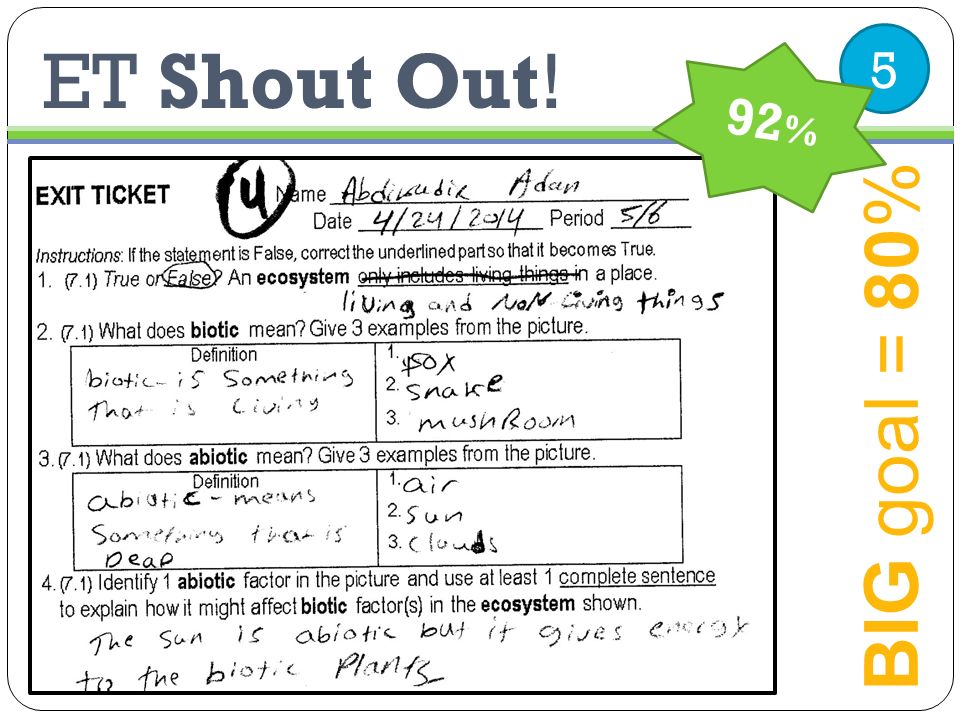 ET Shout Out!
5
92%
BIG goal = 80%
EXIT TICKET
4
Name Abdinadir Adan
Date 4/24/2014 Period 5/6
Instructions: If the statement is False, correct the underlined part so that it becomes True.
1. (7.1) True or False? An ecosystem only includes living things in a place.
living and NoN Living things
2. (7.1) What does biotic mean? Give 3 examples from the picture.
Definition
biotic - is Something
That is Living
1. fox
2. snake
3. mushRoom
3. (7.1) What does abiotic mean? Give 3 examples from the picture.
Definition
abiotic - means
Something that is
DeaD
1. air
2. Sun
3. clouds
4. (7.1) Identify 1 abiotic factor in the picture and use at least 1 complete sentence
to explain how it might affect biotic factor(s) in the ecosystem shown.
The Sun is abiotic but it gives energy
to the biotic Plants